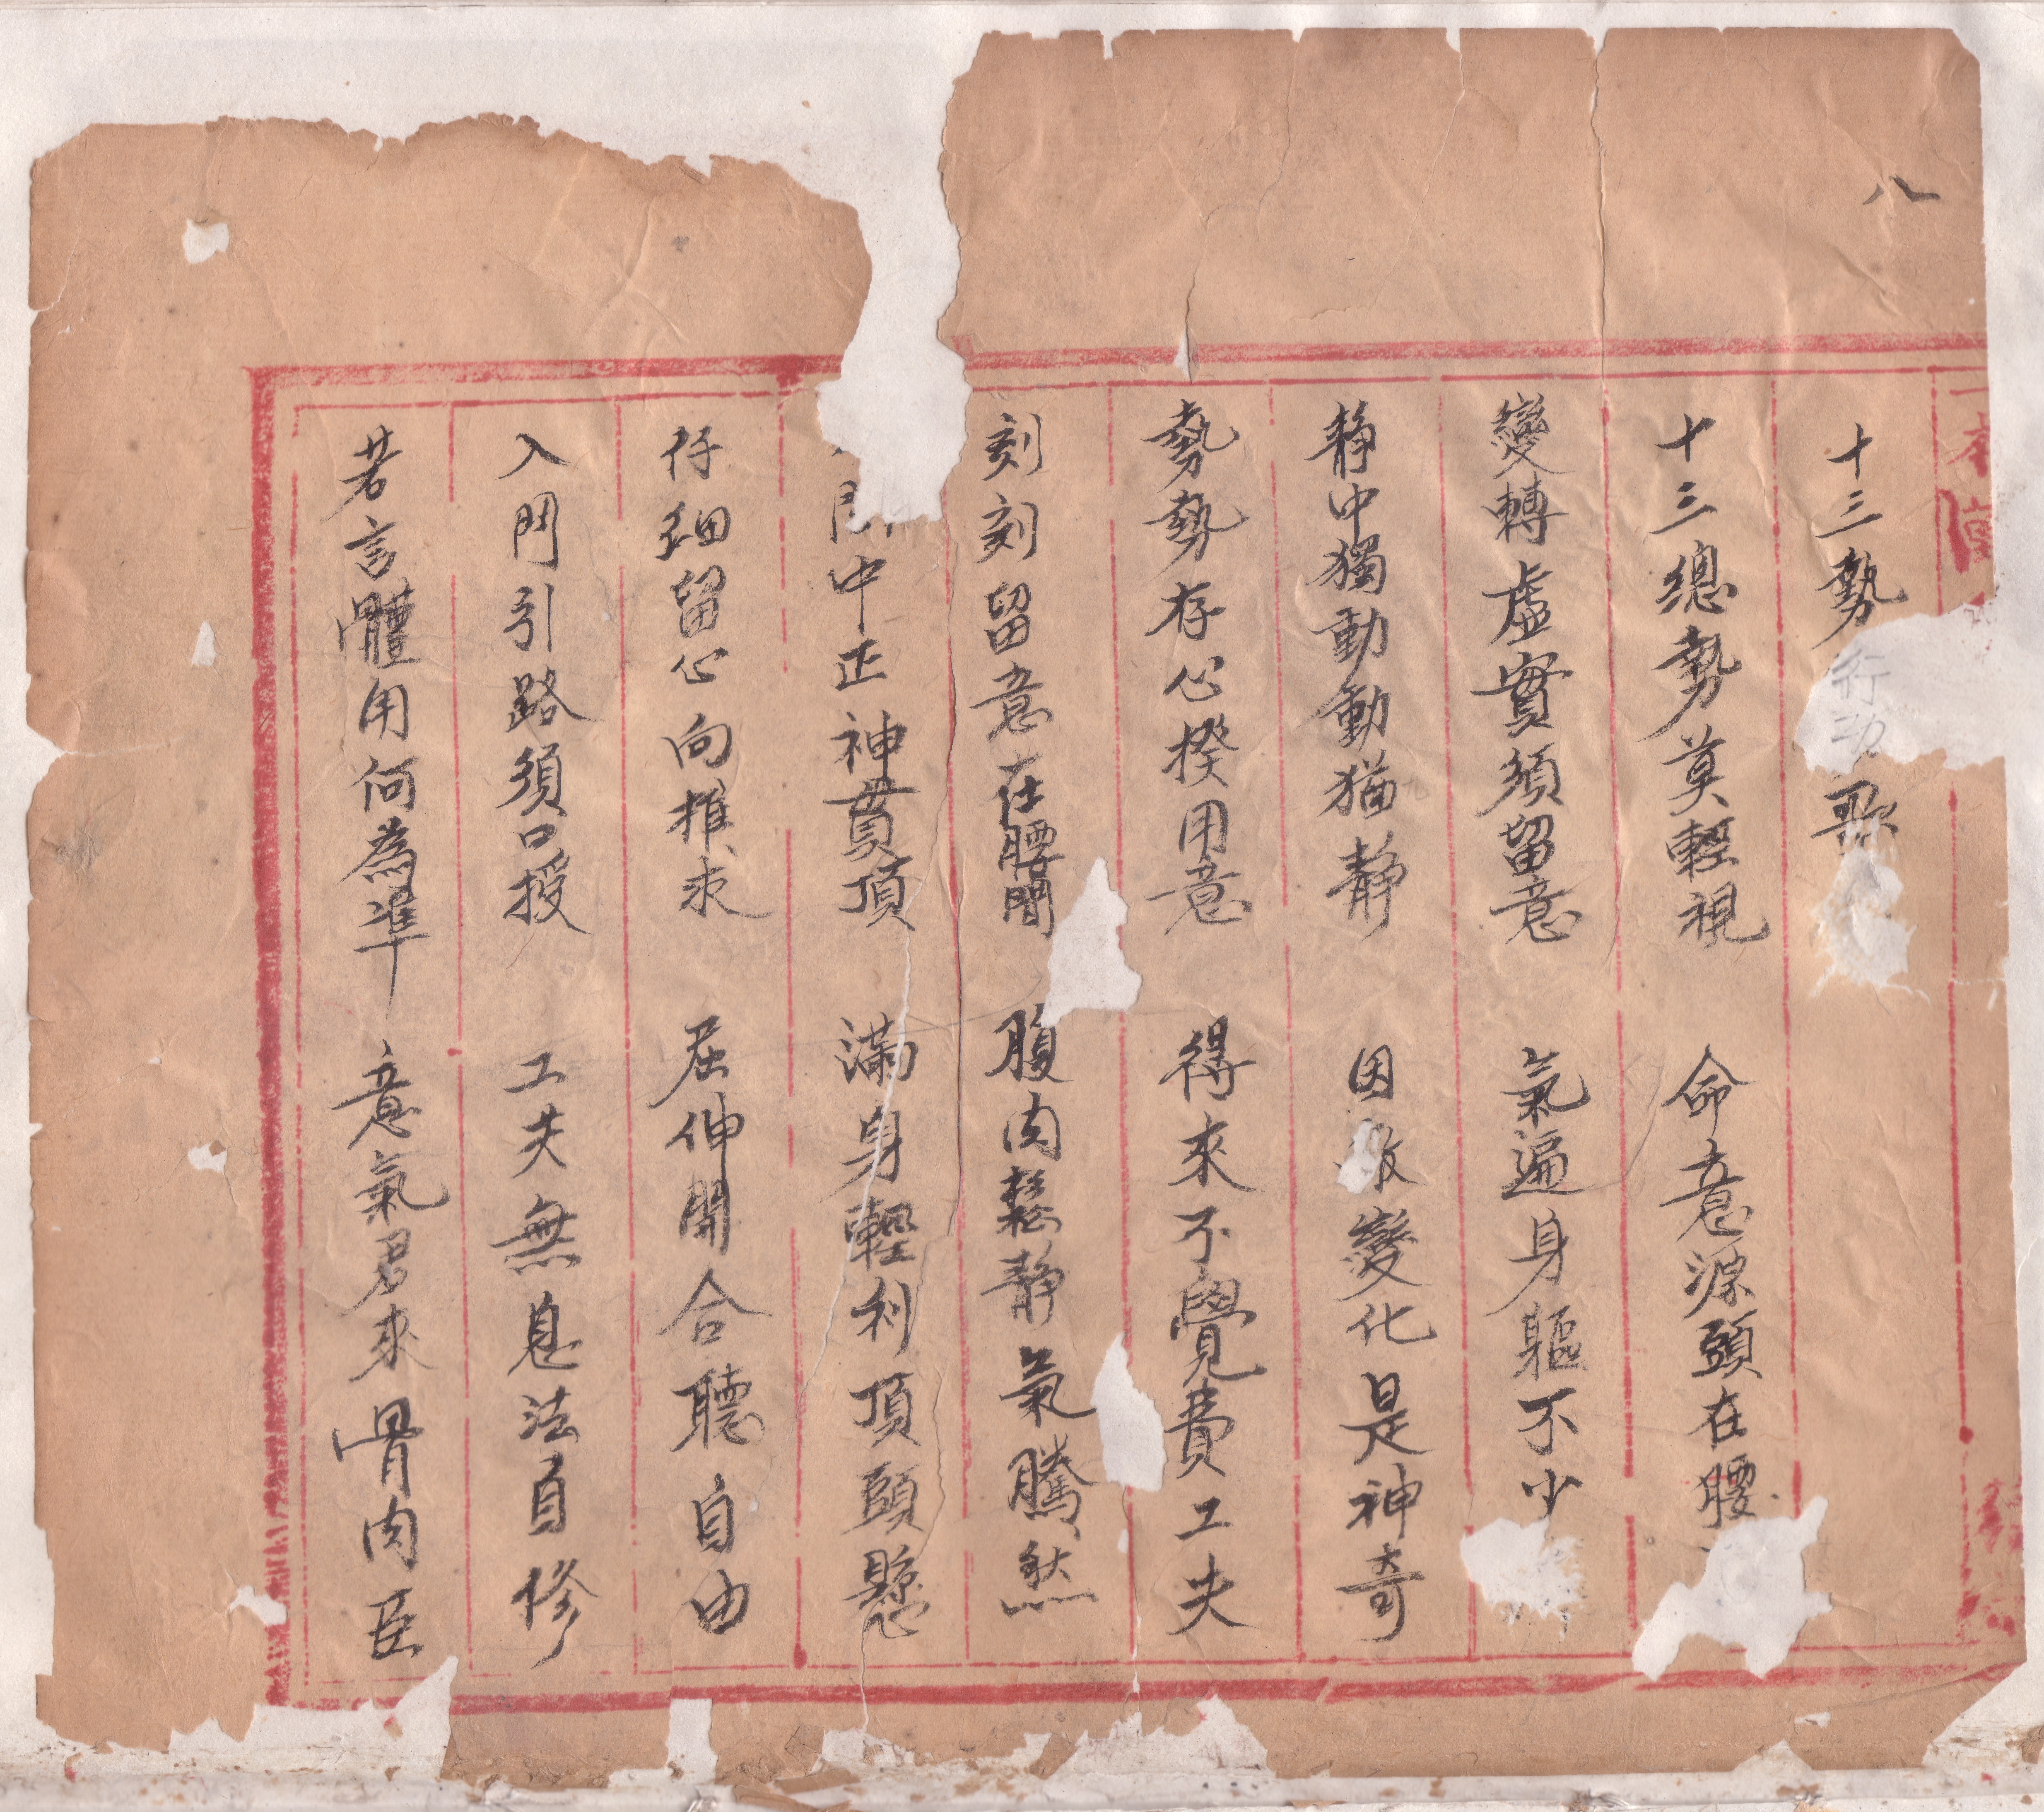 八
十三勢行功歌
十三總勢莫輕視 命意源頭在腰
變轉虛實須留意 氣遍身軀不少
靜中獨動動猶靜 因變化是神奇
勢勢存心揆用意 得來不覺費工夫
刻刻留意在腰間 腹內鬆靜氣騰然
中正神貫頂 滿身輕利頂頭懸
仔細留心向推求 屈伸開合聽自由
入門引路須口授 工夫無息法自修
若言體用何為準 意氣君來骨肉臣